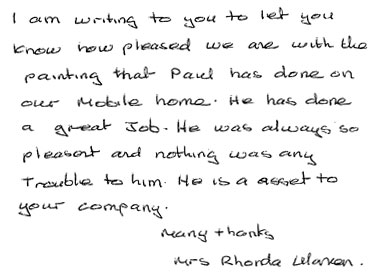 I am writing to you to let you
know how pleased we are with the
painting that Paul has done on
our Mobile home. He has done
a great Job. He was always so
pleasent and nothing was any
Trouble to him. He is a asset to
your company.
Many thanks
Mrs Rhonda